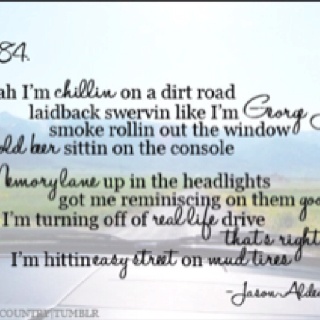 84.
ah I'm chillin on a dirt road
laidback swervin like I'm Georg
smoke rollin out the window
old beer sittin on the console
Memory lane up in the headlights
got me reminiscing on them goo
I'm turning off of real life drive
that's right
I'm hittin easy street on mud tires
-Jason Alde
COUNTRY|TUMBLR